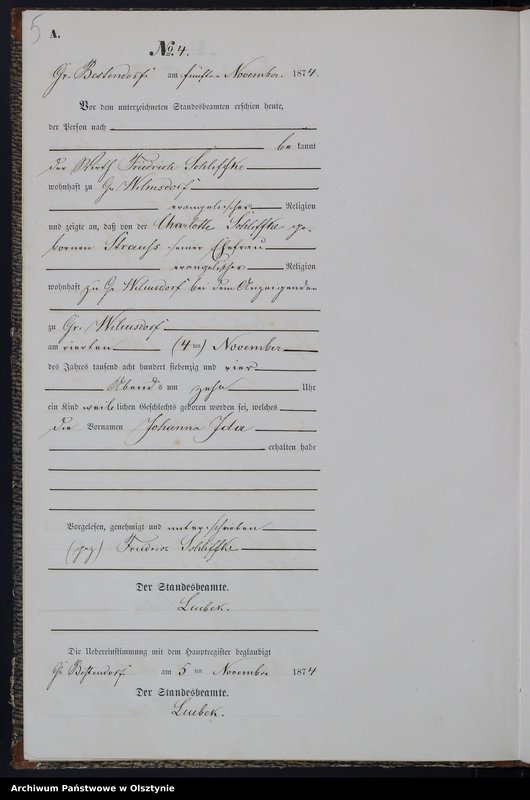 5
A.
No. 4.
Gr. Bestendorf am fünften November 1874.
Vor dem unterzeichneten Standesbeamten erschien heute,
der Person nach
be kannt
der Wirth Friedrich Schliffke
wohnhaft zu Gr. Wilmsdorf
evangelischer Religion
und zeigte an, daß von der Charlotte Schliffke ge-
bornen Strauhs seiner Ehefrau
evangelischer Religion
wohnhaft zu Gr Wilmsdorf bei dem Anzeigenden
zu Gr. Wilmsdorf
am vierten (4 ten) November
des Jahres tausend acht hundert siebenzig und vier
Abends um zehn Uhr
ein Kind weib lichen Geschlechts geboren worden sei, welches
die Vornamen Johanna Ida
erhalten habe
Vorgelesen, genehmigt und unterschrieben
(gez) Friedrich Schliffke
Der Standesbeamte.
Luebek.
Die Uebereinstimmung mit dem Hauptregister beglaubigt
Gr Bestendorf am 5 ten November 1874
Der Standesbeamte.
Luebek.
Archiwum Państwowe w Olsztynie